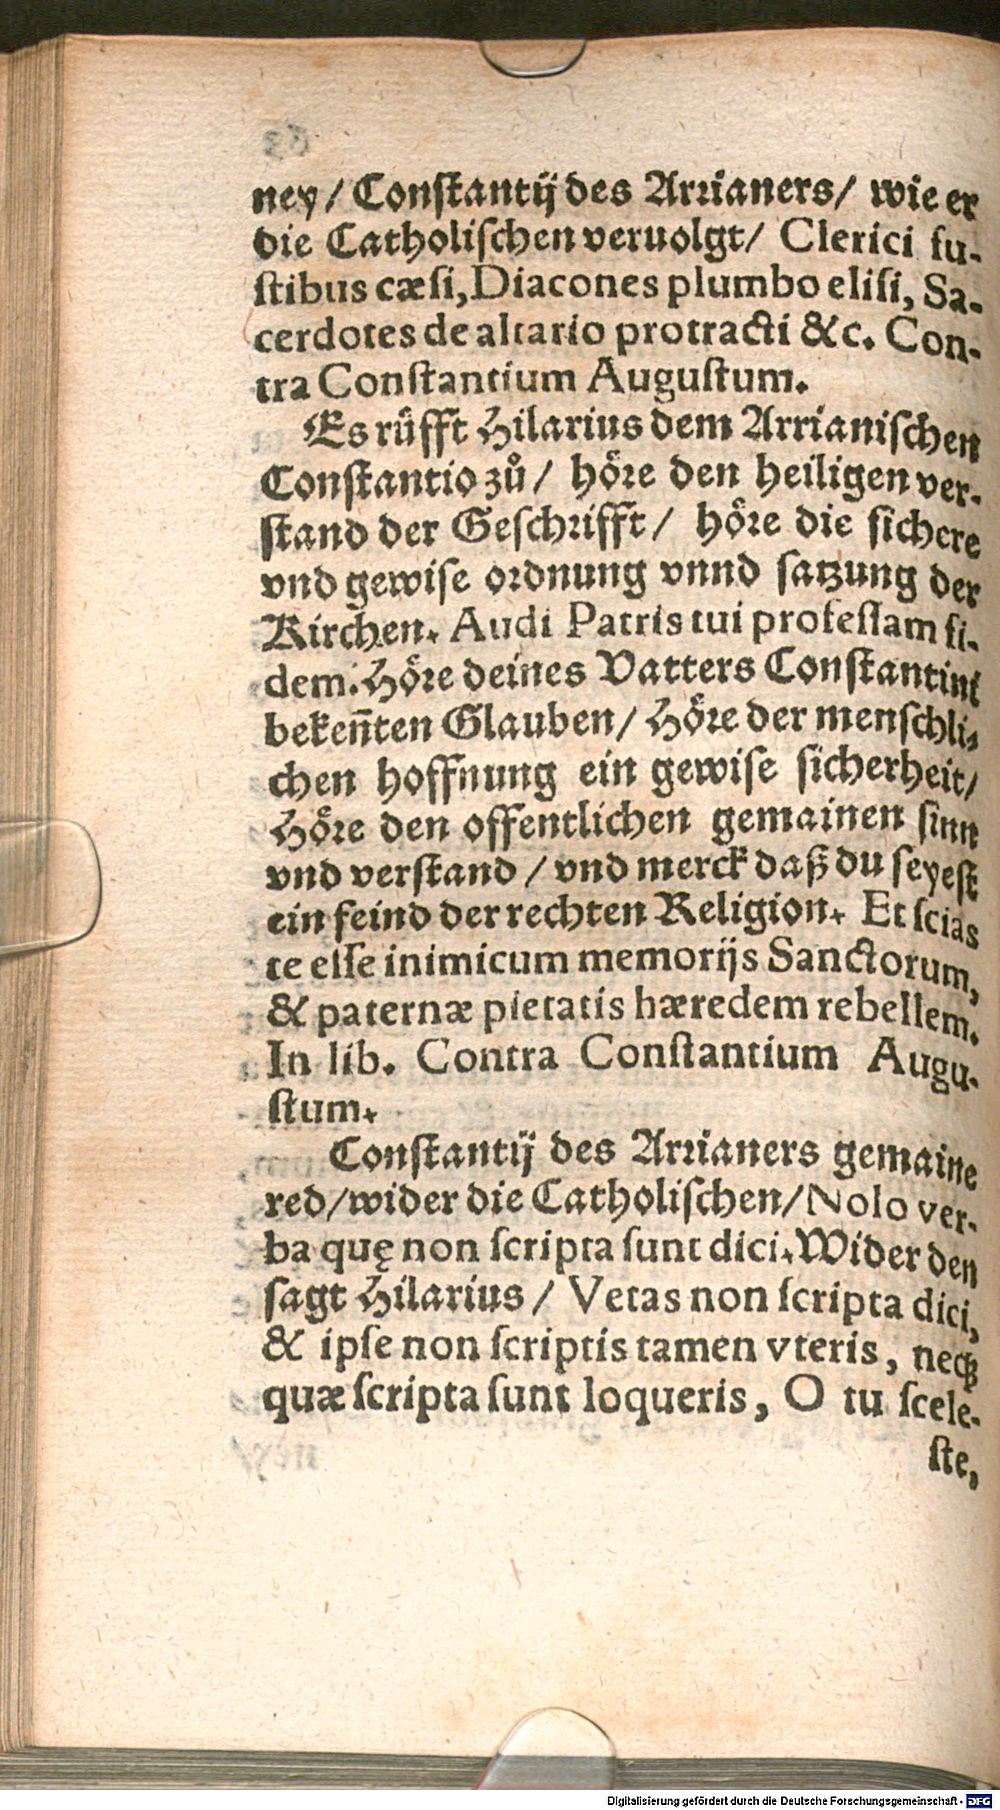 ney / Constantij des Arrianers / wie er
die Catholischen veruolgt / Clerici fu-
stibus cæsi, Diacones plumbo elisi, Sa-
cerdotes de altario protracti &c. Con-
tra Constantium Augustum.
Es rüfft Hilarius dem Arrianischen
Constantio zů / höre den heiligen ver-
stand der Geschrifft / höre die sichere
vnd gewise ordnung vnnd satzung der
Kirchen. Audi Patris tui professam fi-
dem. Höre deines Vatters Constantini
bekeñten Glauben / Höre der menschli-
chen hoffnung ein gewise sicherheit /
Höre den offentlichen gemainen sinn
vnd verstand / vnd merck daß du seyest
ein feind der rechten Religion. Et scias
te esse inimicum memorijs Sanctorum,
& paternæ pietatis hæredem rebellem.
In lib. Contra Constantium Augu-
stum.
Constantij des Arrianers gemaine
red / wider die Catholischen / Nolo ver-
ba quę non scripta sunt dici. Wider den
sagt Hilarius / Vetas non scripta dici,
& ipse non scriptis tamen vteris, neqꝫ
quæ scripta sunt loqueris, O tu scele-
ste,
Digitalisierung gefördert durch die Deutsche Forschungsgemeinschaft - DFG